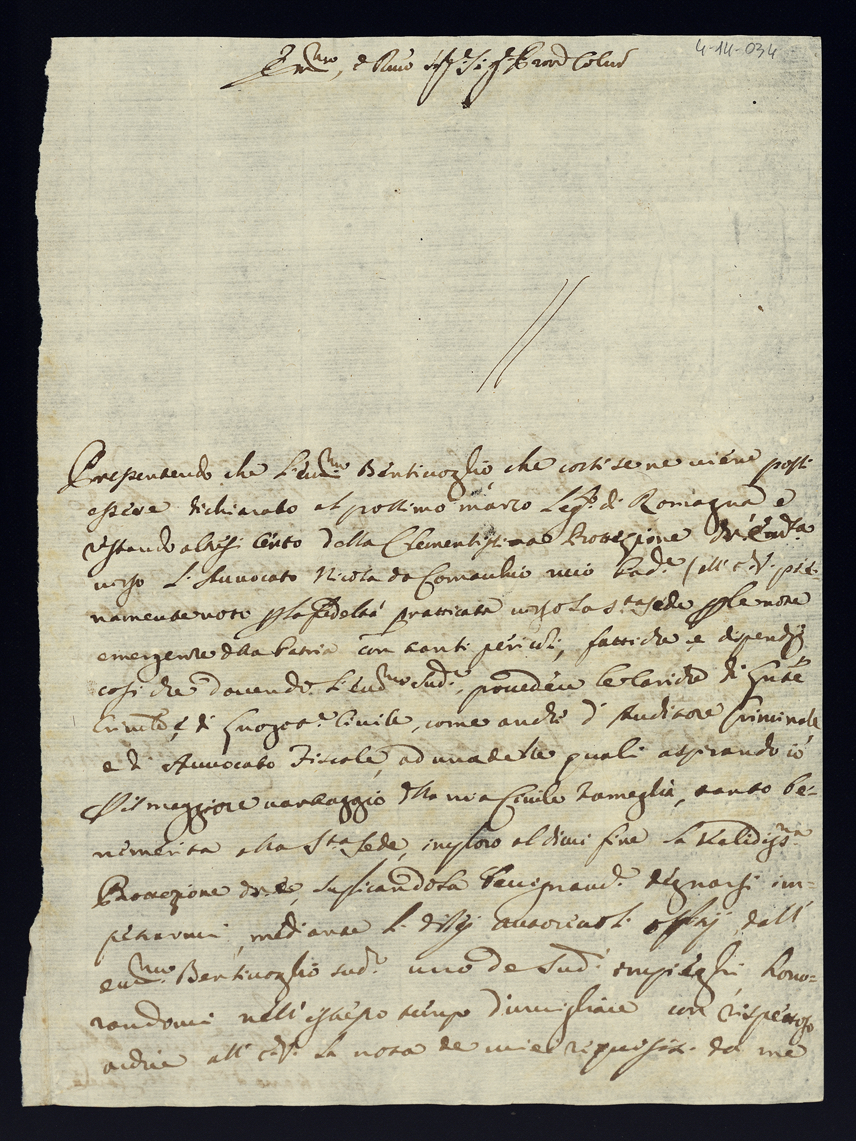 4-14-034
Em.mo, e R.mo Sig.r Sig.r P.ron Col.mo
Presentendo che l'em.mo Bentivoglio che costì se ne viene possi
essere dichiarato al prossimo marzo Leg.o di Romagna e
restando altresì certo della Clementissima Protezione di
verso l'Avvocato Nicola da Comachio mio Pad.e (all' e.V.
namente noto p la fedeltà pratticata verso la S.ta Sede p le note
emergenze della Patria con tanti pericoli, fattiche, e dispendj
così che dovendo l'em.mo sud.o, provedere le Cariche di
Crim.le, e di Luogot.e Civile, come anche d'Auditore Criminale
e di Avvocato Fiscale, ad una delle quali aspirando io
p il maggiore vantaggio della mia Civile Fameglia, tanto be-
nemerita alla S.ta Sede, imploro al di mi fine la validiss.ma
Protezione di, suplicandola benignam.e degnarsi im-
petrarmi, mediante li di autorevoli offizj dall'
em.mo Bentivoglio sud.o uno de sud.i impieghi hono-
randomi nell'istesso tempo d'umigliare con rispettoso
ardire all' e.V. la nota de miei requisiti da me